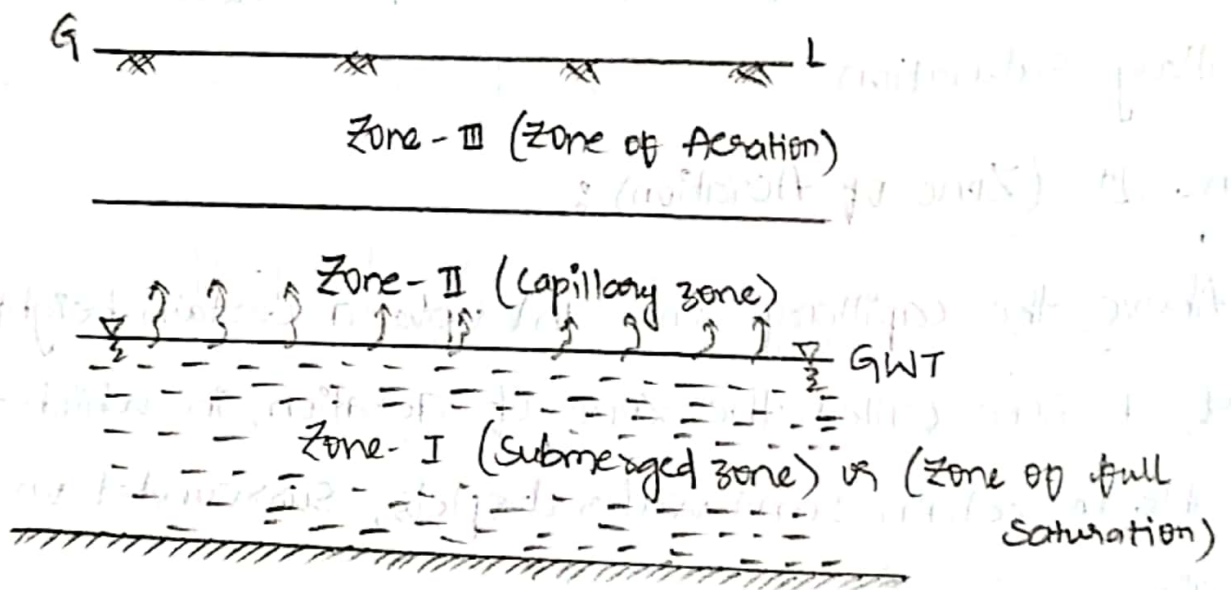 G L
Zone - III (Zone of Aeration)
Zone - II (Capillary zone)
GWT
Zone - I (Submerged zone) or (Zone of full
Saturation)